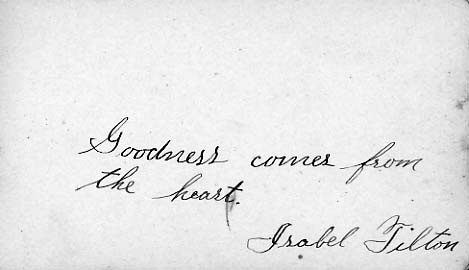 Goodness comes from
the heart.
Isabel Tilton